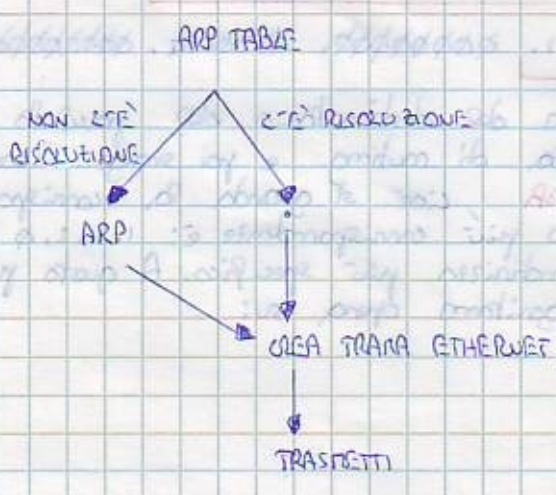 ARP TABLE
NON C'È
RISOLUZIONE
C'È RISOLUZIONE
ARP
CREA TRAMA ETHERNET
TRASMETTI